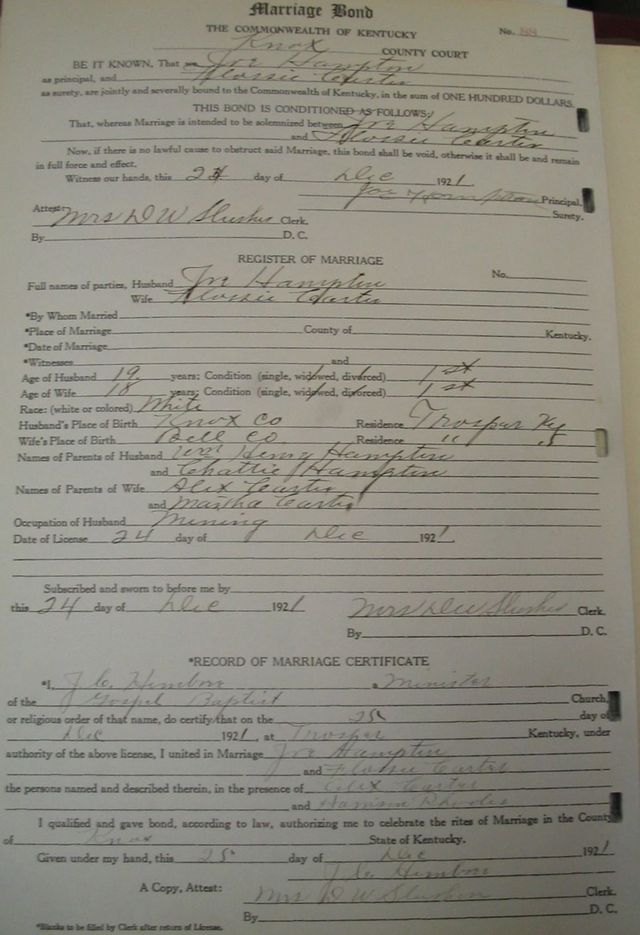 Marriage Bond
THE COMMONWEALTH OF KENTUCKY No.
Knox COUNTY COURT
BE IT KNOWN, That we Joe Hampton
as principal, and Flossie Carter
as surety, are jointly and severally bound to the Commonwealth of Kentucky, in the sum of ONE HUNDRED DOLLARS.
THIS BOND IS CONDITIONED AS FOLLOWS:
That, whereas Marriage is intended to be solemnized between Joe Hampton
and Flossie Carter
Now, if there is no lawful cause to obstruct said Marriage, this bond shall be void, otherwise it shall be and remain
in full force and effect.
Witness our hands, this 24 day of Dec 1921
Joe Hampton Principal.
Surety.
Attest: Mrs D W Slusher Clerk.
By D. C.
REGISTER OF MARRIAGE
No.
Full names of parties, Husband Joe Hampton
Wife Flossie Carter
*By Whom Married
*Place of Marriage County of Kentucky.
*Date of Marriage
*Witnesses and
Age of Husband 19 years; Condition (single, widowed, divorced) 1st
Age of Wife 18 years; Condition (single, widowed, divorced) 1st
Race: (white or colored) White
Husband's Place of Birth Knox Co Residence Trosper Ky
Wife's Place of Birth Bell Co. Residence " "
Names of Parents of Husband Wm Henry Hampton
and Chattie Hampton
Names of Parents of Wife Alex Carter
and Martha Carter
Occupation of Husband Mining
Date of License 24 day of Dec 1921.
Subscribed and sworn to before me by
this 24 day of Dec 1921 Mrs D W Slusher Clerk.
By D. C.
*RECORD OF MARRIAGE CERTIFICATE
*I, J. C. a Minister
of the Gospel Baptist Church,
or religious order of that name, do certify that on the 25 day of
Dec 1921, at Trosper Kentucky, under
authority of the above license, I united in Marriage Joe Hampton
and Flossie Carter
the persons named and described therein, in the presence of Alex Carter
and Rhodes
I qualified and gave bond, according to law, authorizing me to celebrate the rites of Marriage in the County
of Knox State of Kentucky.
Given under my hand, this 25 day of Dec 1921
J. C.
A Copy, Attest: Mrs D W Slusher Clerk.
By D. C.
*Blanks to be filled by Clerk after return of License.